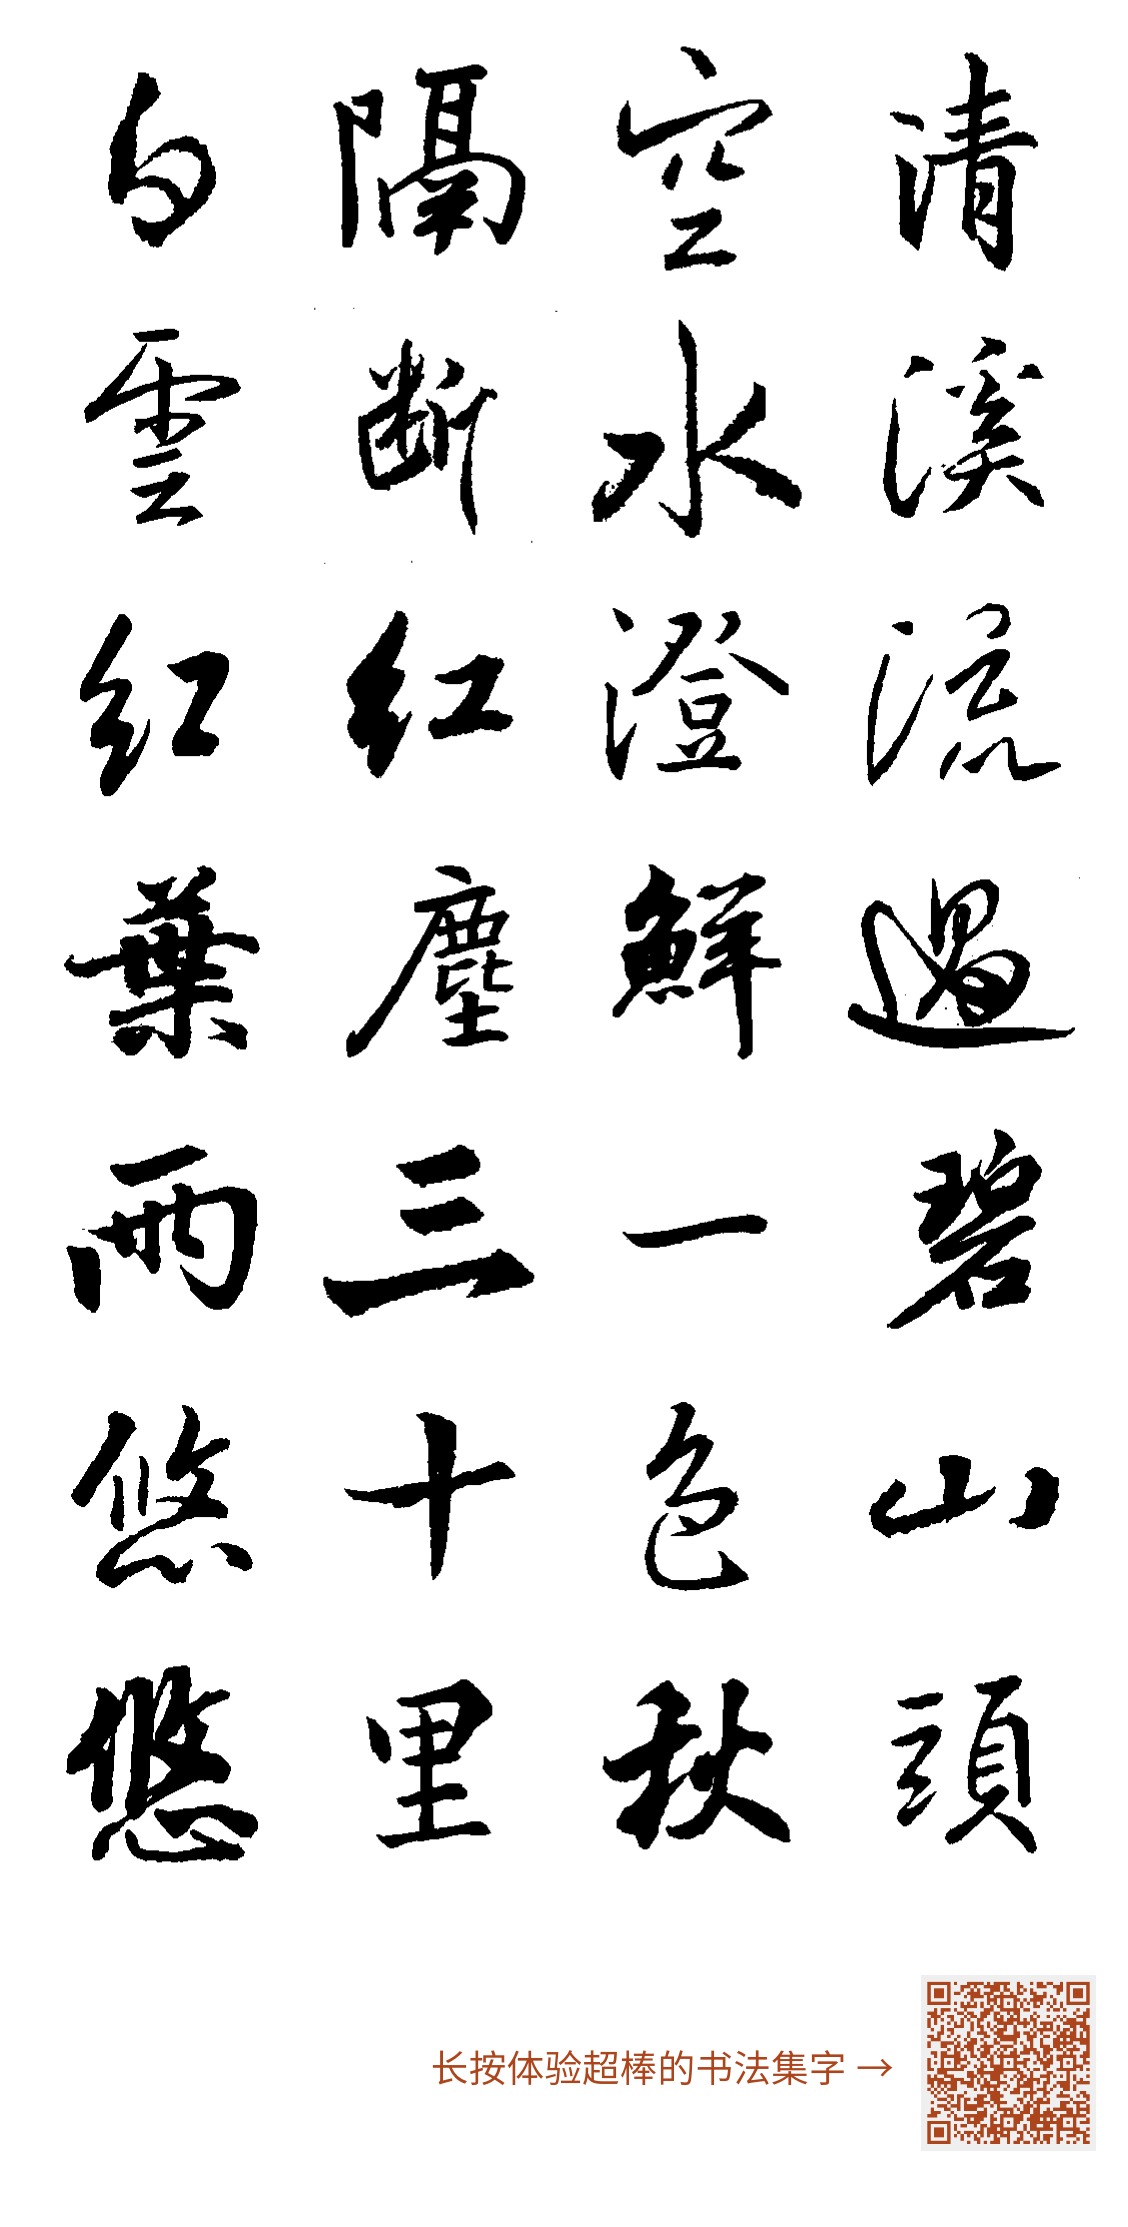 清溪流過碧山頭
空水澄鮮一色秋
隔断红塵三十里
白雲红葉兩悠悠
长按体验超棒的书法集字 →